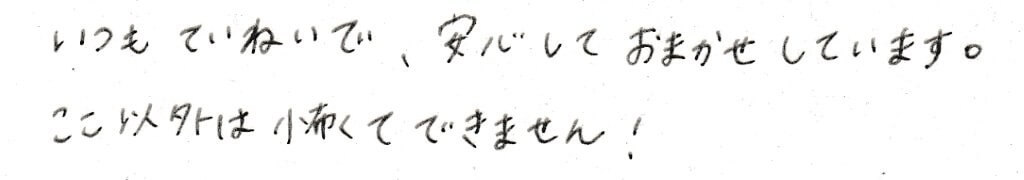 いつもていねいで、安心しておまかせしています。
ここ以外は怖くてできません!